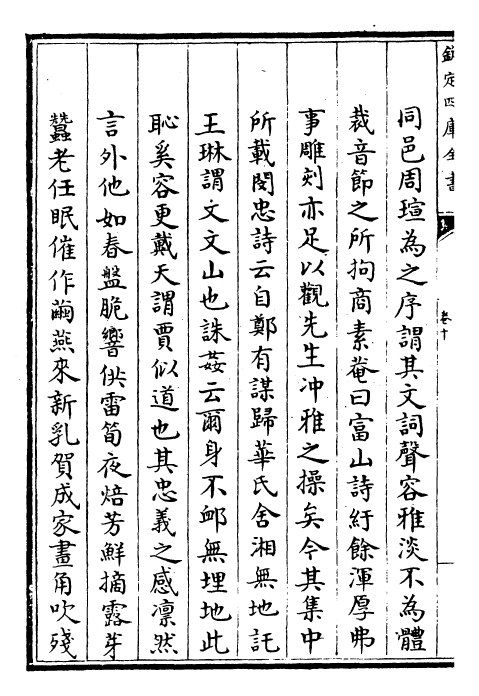 欽定四庫全書
卷十
同邑周瑄為之序謂其文詞聲容雅淡不為體
裁音節之所拘商素菴曰富山詩紆餘渾厚弗
事雕刻亦足以觀先生冲雅之操矣今其集中
所載閔忠詩云自鄭有謀歸華氏舍湘無地託
王琳謂文文山也誅姦云爾身不䘏無埋地此
恥奚容更戴天謂賈似道也其忠義之感凛然
言外他如春盤脆響供雷筍夜焙芳鮮摘露芽
蠶老任眠催作繭燕來新乳賀成家畫角吹殘